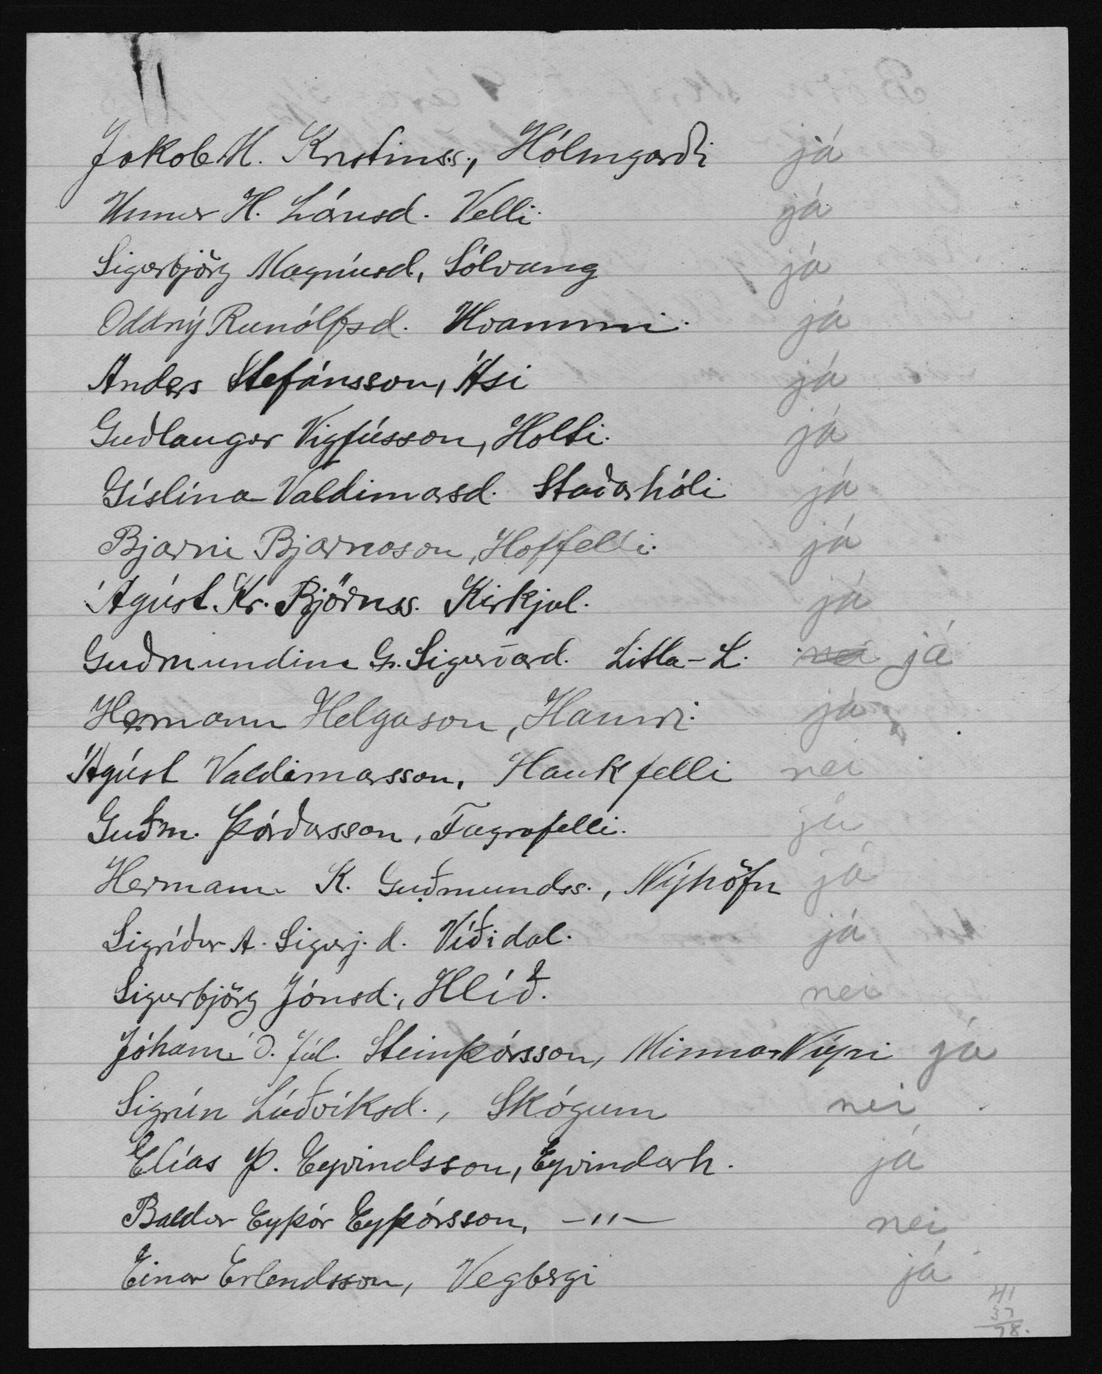 Jakob H. Kristinss., Hólmgarði já
Unnur H. Lárusd. Velli. já
Sigurbjörg Magnúsd, Sólvang já
Oddný Runólfsd. Hvammi. já
Anders Stefánsson, Ási já
Guðlaugur Vigfússon, Holti. já
Gíslína Valdimarsd. Staðarhóli já
Bjarni Bjarnason, Hoffelli. já
Ágúst. Kr. Björnss. Kirkjul. já
Guðmundína G. Sigurvard. Litla-L. nei já
Hermann Helgason, Hamri. já
Ágúst Valdimarsson, Haukfelli nei
Guðm. Þórðarsson, Fagrafelli. já
Hermann K. Guðmundss., Nýhöfn já
Sigríður A. Sigurj.d. Víðidal. já
Sigurbjörg Jónsd., Hlíð. nei
Jóhann Ó. Júl. Steinþórsson, Minna-Núpi já
Sigrún Lúðvíksd., Skógum nei
Elías Þ. Eyvindsson, Eyvindarh. já
Baldur Eyþór Eyþórsson, —"— nei
Einar Erlendsson, Vegbergi já
41
37
78.